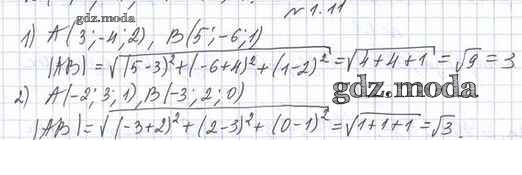 №1.11
gdz.moda
1) A(3;-4;2), B(5;-6;1)
|AB| = √((5-3)²+(-6+4)²+(1-2)²) = √(4+4+1) = √9 = 3
gdz.moda
2) A(-2;3;1), B(-3;2;0)
|AB| = √((-3+2)²+(2-3)²+(0-1)²) = √(1+1+1) = √3.